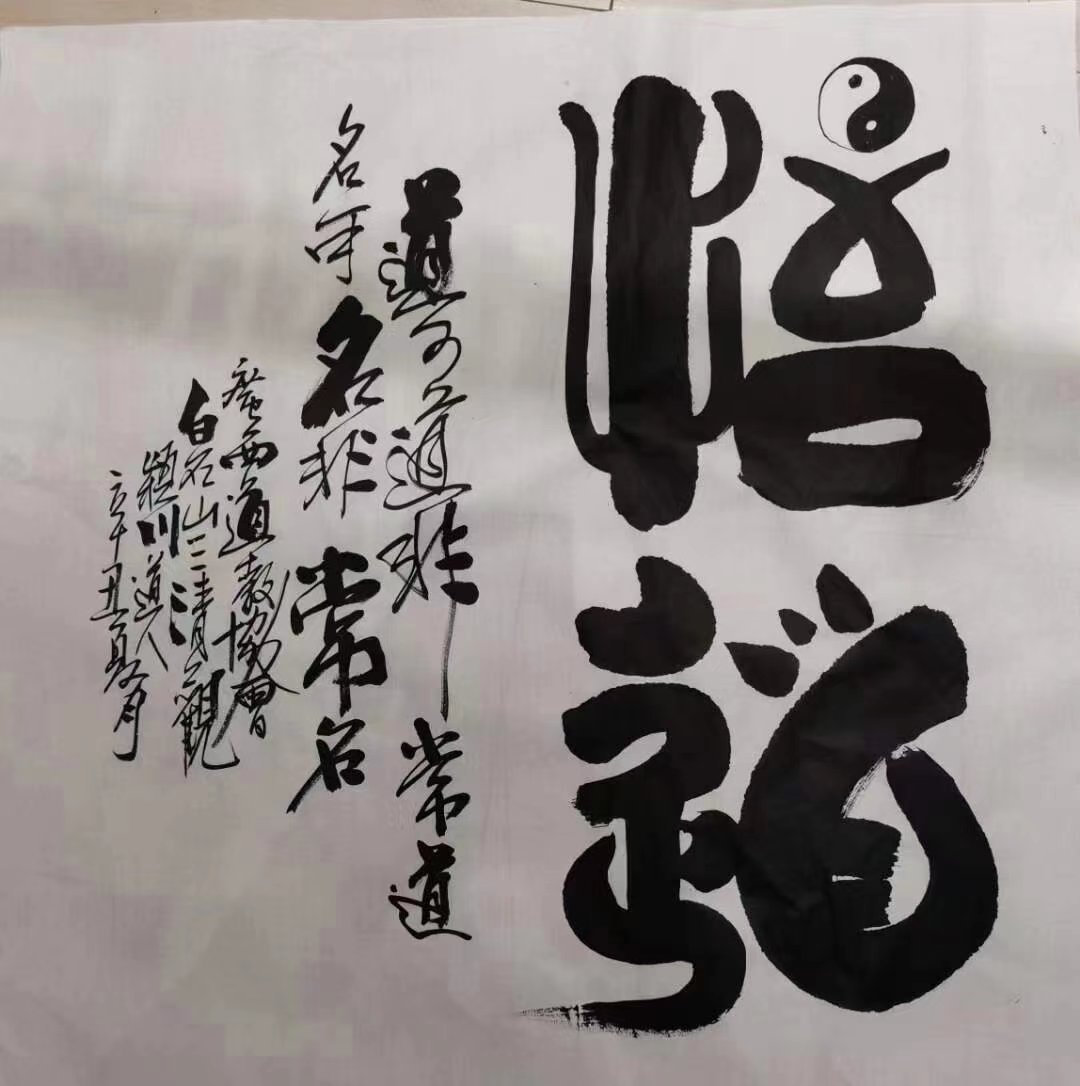 悟道
道可道非常道
名可名非常名
西道教協會
白石山三清觀
潁川道人
辛丑夏月